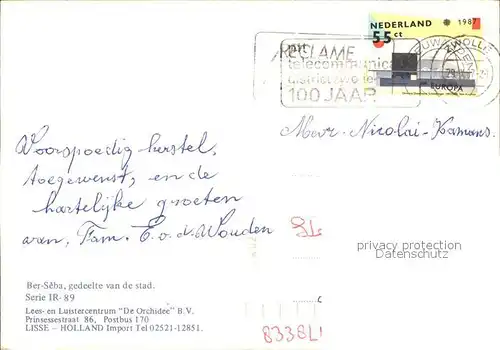 NEDERLAND 1987
55 ct
EUROPA
RECLAME
ptt
telecommunica
district zwolle
100 JAAR
ZWOLLE
Mevr. Nicolai-Kamans.
Voorspoedig herstel,
toegewenst, en de
hartelijke groeten
van, Fam. E. v. d. Wouden
privacy protection
Datenschutz
Ber-Sêba, gedeelte van de stad.
Serie IR-89
Lees- en Luistercentrum "De Orchidee" B.V.
Prinsessestraat 86, Postbus 170
LISSE – HOLLAND Import Tel 02521-12851.
8338L